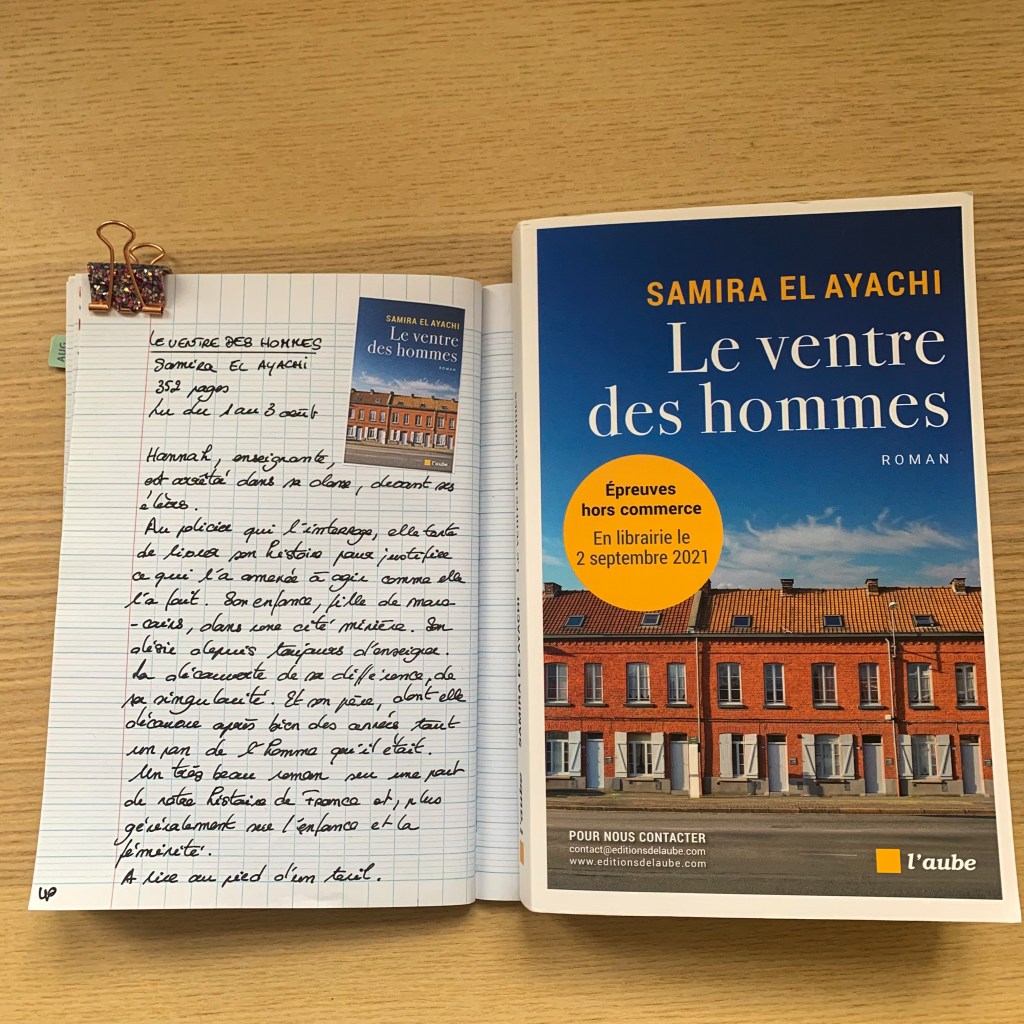 LE VENTRE DES HOMMES
Samira EL AYACHI
352 pages
Lu du 1 au 3 août
Hannah, enseignante,
est arrêtée dans sa classe, devant ses
élèves.
Au policier qui l'interroge, elle tente
de livrer son histoire pour justifier
ce qui l'a amenée à agir comme elle
l'a fait. Son enfance, fille de maro
-cains, dans une cité minière. Son
désir depuis toujours d'enseigner.
La découverte de sa différence, de
sa singularité. Et son père, dont elle
découvre après bien des années tout
un pan de l'homme qu'il était.
Un très beau roman sur une part
de notre histoire de France et, plus
généralement sur l'enfance et la
féminité.
A lire au pied d'un terril.
AUG
SAMIRA EL AYACHI
Le ventre
des hommes
ROMAN
l'aube
SAMIRA EL AYACHI
l'aube
SAMIRA EL AYACHI
Le ventre
des hommes
ROMAN
Épreuves
hors commerce
En librairie le
2 septembre 2021
POUR NOUS CONTACTER
contact@editionsdelaube.com
www.editionsdelaube.com
l'aube